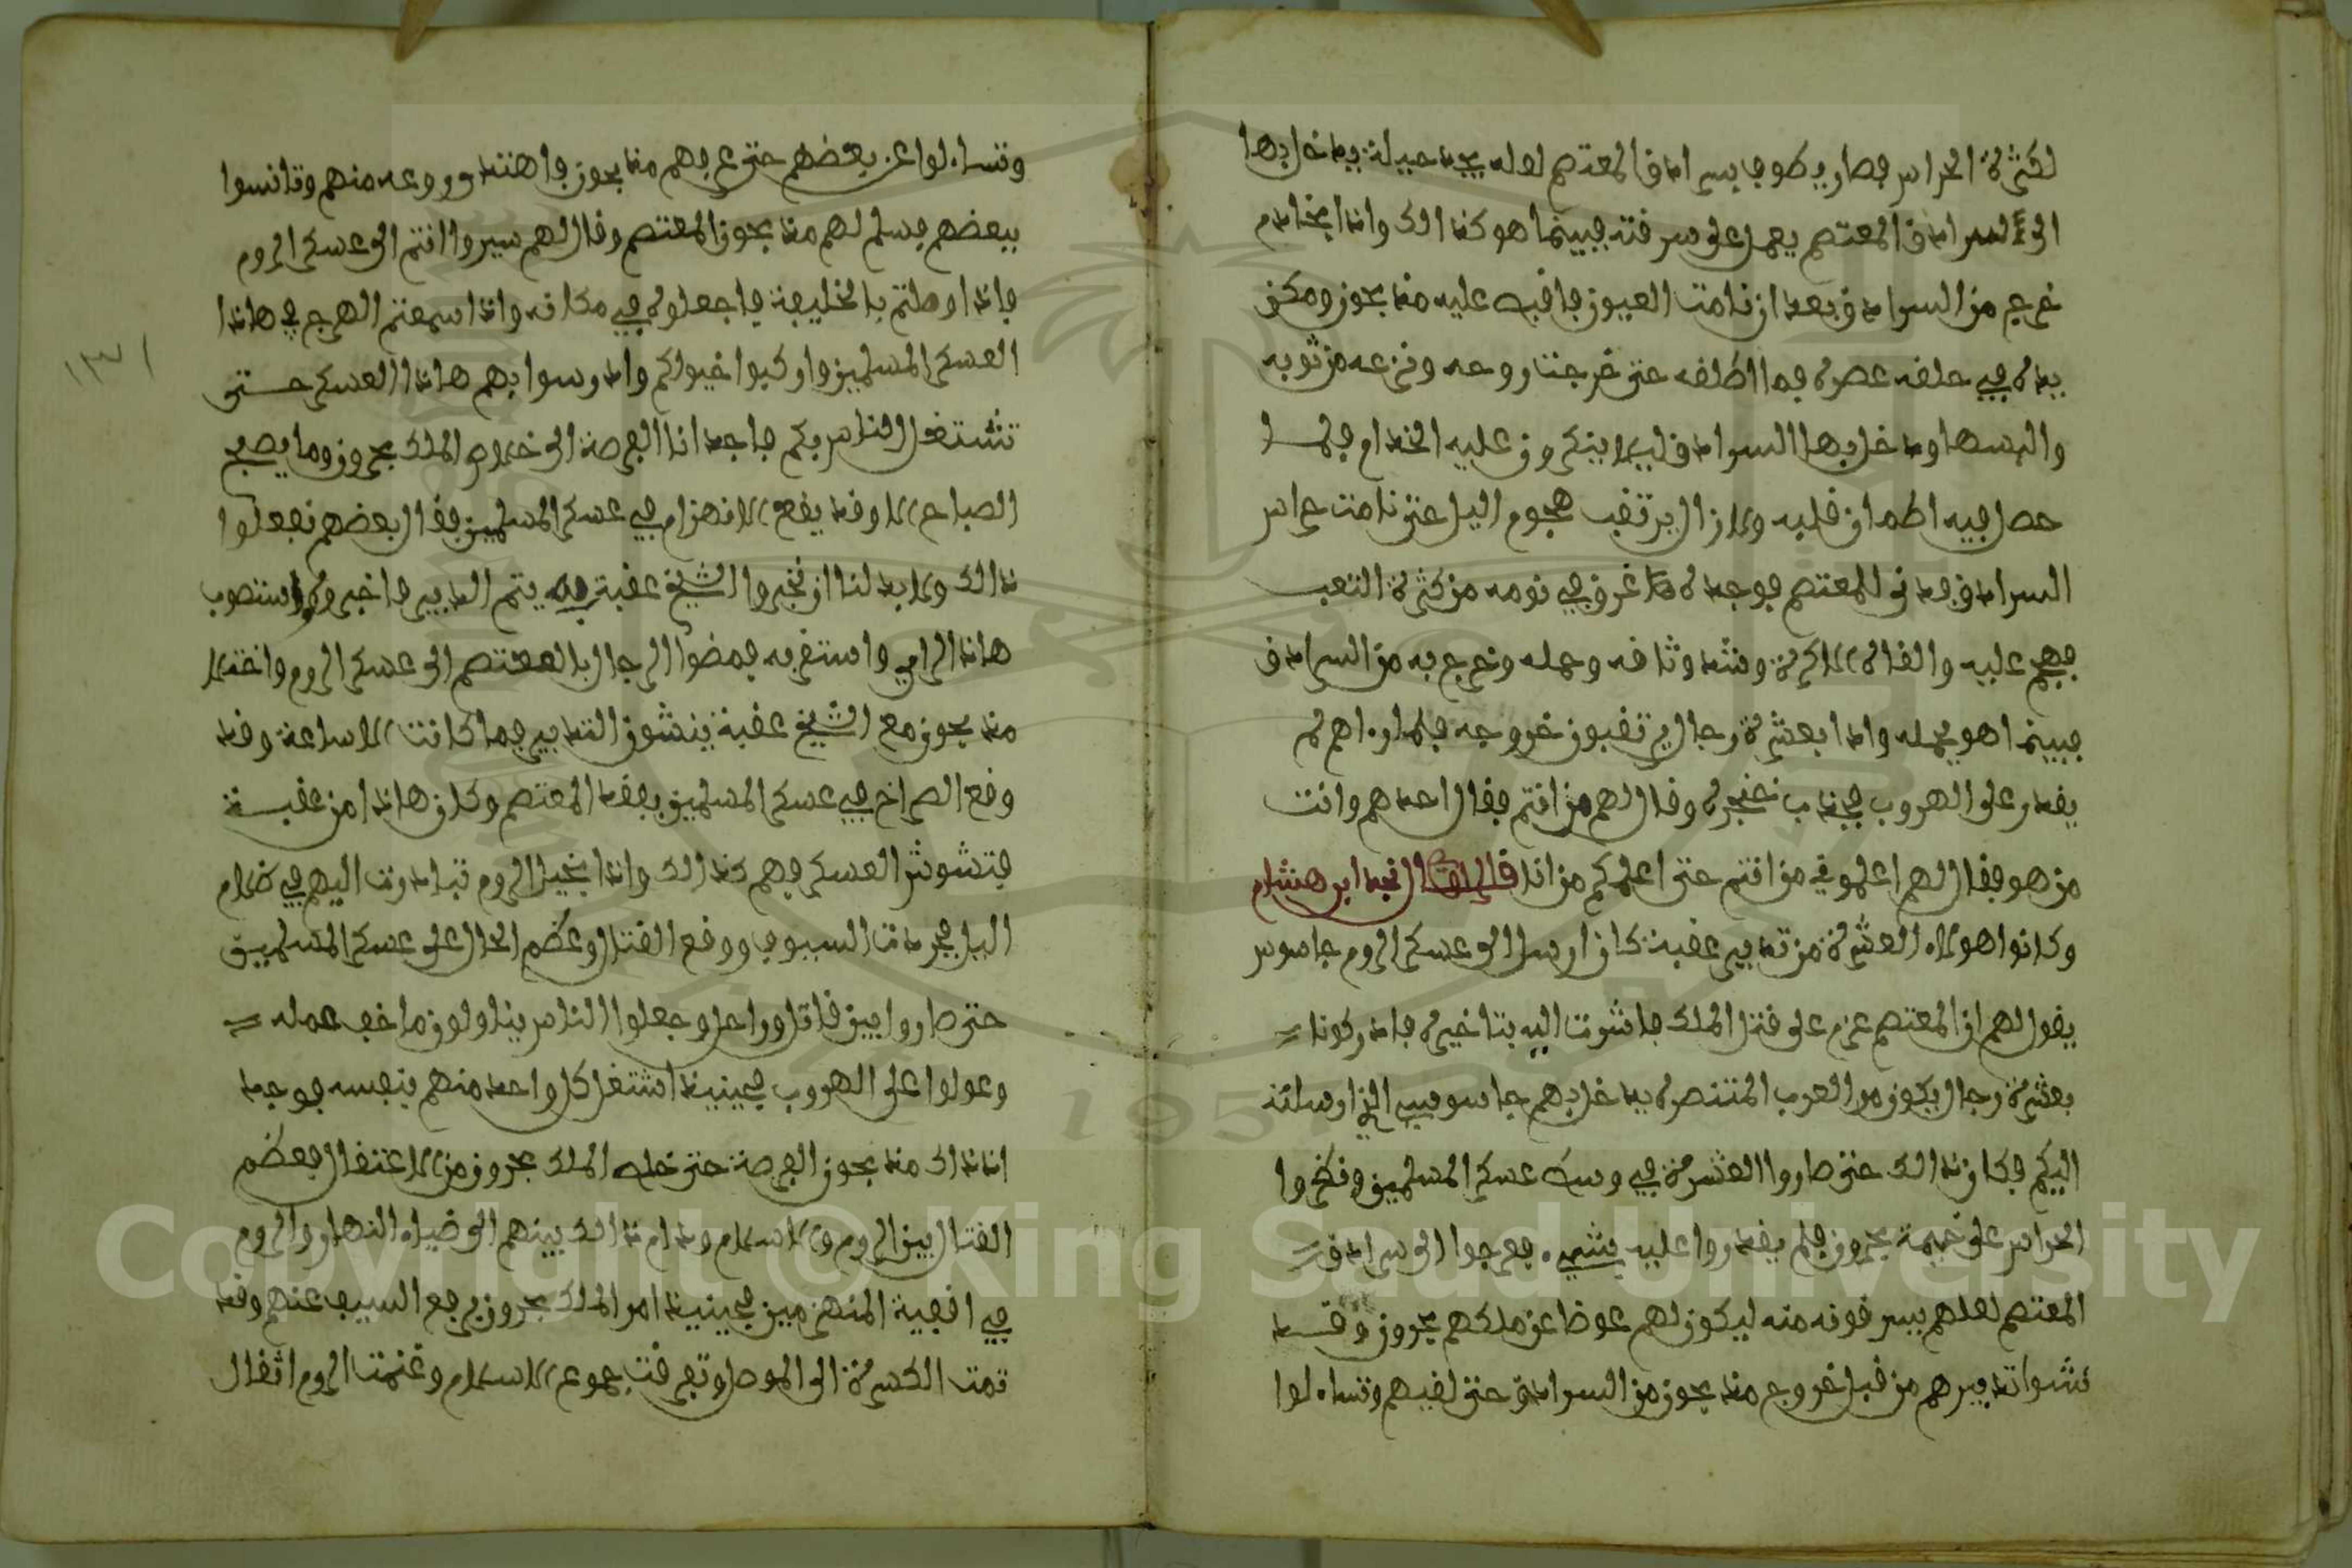 لكثرة الحراس فصار يطوف بسرادق المعتصم لعله يجد حيلة يدخل بها
الى السرادق المعتصم يعمل على سرقته فبينما هو كذالك واذا بخادم
خرج من السرادق بعد ان نامت العيون فاقبه عليه منذ بحون ومكن
يده في حلقه عصره فما اطلقه حتى خرجت روحه ونزعه من ثوبه
والبسها ودخل بها السرادق ليلا ينكرون عليه الخدام فلما
حصل فيه اطمان قلبه ولا زال يرتقب هجوم اليل حتى نامت حراس
السرادق فدنى للمعتصم فوجده غرق في نومه من كثرة التعب
فهجم عليه والقاه الاكرة وشد وثاقه وحمله وخرج به من السرادق
فبينما هو يحمله واذا بعشرة رجال يرتقبون خروجه فلما راهم لم
يقدر على الهروب فجذب خنجره وقال لهم من انتم فقال احدهم وانت
من هو فقال لهم اعلموني من انتم حتى اعلمكم من انا قال نجد ابن هشام
وكانوا هولاء العشرة من تدبير عقبة كان ارسل الى عسكر الروم جاسوس
يقول لهم ان المعتصم عزم على قتل الملك فاشوت اليه بتاخيره فادركونا
بعشرة رجال يكون من العرب المتنصرة يدخل بهم جاسوسي الذي ارسلته
اليكم فكان ذالك حتى صاروا العشرة في وسط عسكر المسلمين ونظروا
الحراس على خيمة بحرون فلم يقدروا عليه بشيء فعرجوا الى سرادق
المعتصم لعلهم يسرقونه منه ليكون لهم عوضا عن ملكهم بحرون وقد
نشوا تدبيرهم من قبل خروج منذ بحون من السرادق حتى لقيهم وتساءلوا
وتساءلوا عن بعضهم حتى عرفهم منذ بحون فاهتد وروعه منهم وتانسوا
ببعضهم فسلم لهم منذ بحون المعتصم وقال لهم سيروا انتم الى عسكر الروم
فاذا وصلتم بالخليفة فاجعلوه في مكانه واذا سمعتم الهرج في هاذا
العسكر المسلمين واركبوا خيولكم وادرسوا بهم هاذا العسكر حتى
تشتغل الناس بكم فاجد انا الفرصة الى خلاص الملك بحرون وما يصبح
الصباح الا وقد يقع الانهزام في عسكر المسلمين فقال بعضهم نفعلوا
ذالك ولا بد لنا ان نخبروا الشيخ عقبة يتم التدبير فاخبروه واستصوب
هاذا الراي واستغر به فمضوا الرجال بالمعتصم الى عسكر الروم واختلا
منذ بحون مع الشيخ عقبة ينشون التدبير فما كانت الا ساعة وقد
وقع الصراخ في عسكر المسلمين بفقد المعتصم وكان هاذا من عقبة
فتشوش العسكر فهم كذالك واذا بخيل الروم تبادرت اليهم في ظلام
اليل فجردت السيوف ووقع القتال وعظم الحال على عسكر المسلمين
حتى صاروا بين قاتل وراحل وجعلوا الناس يناولون ما خف حمله
وعولوا على الهروب فحينيذ اشتغل كل واحد منهم بنفسه فوجد
اذذاك منذ بحون الفرصة حتى خلص الملك بحرون من الاعتقال فعظم
القتال بين الروم والاسلام ودام ذالك بينهم الى ضياء النهار والروم
في اقفية المنهزمين فحينيذ امر الملك بحرون برفع السيف عنهم وقد
تمت الكسرة الى الموصل وتفرقت جموع الاسلام وغنمت الروم اثقال
١٣١
Copyright © King Saud University
1957